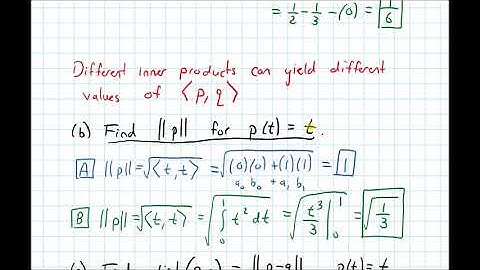 = 1/2 - 1/3 - (0) = 1/6
Different inner products can yield different
values of ⟨p, q⟩
(b) Find ||p|| for p(t) = t.
A ||p|| = √⟨t, t⟩ = √((0)(0) + (1)(1)) = 1
a₀ b₀ + a₁ b₁
B ||p|| = √⟨t, t⟩ = √(∫₀¹ t² dt) = √(t³/3 |₀¹) = √(1/3)
||p-q|| p(t) = t